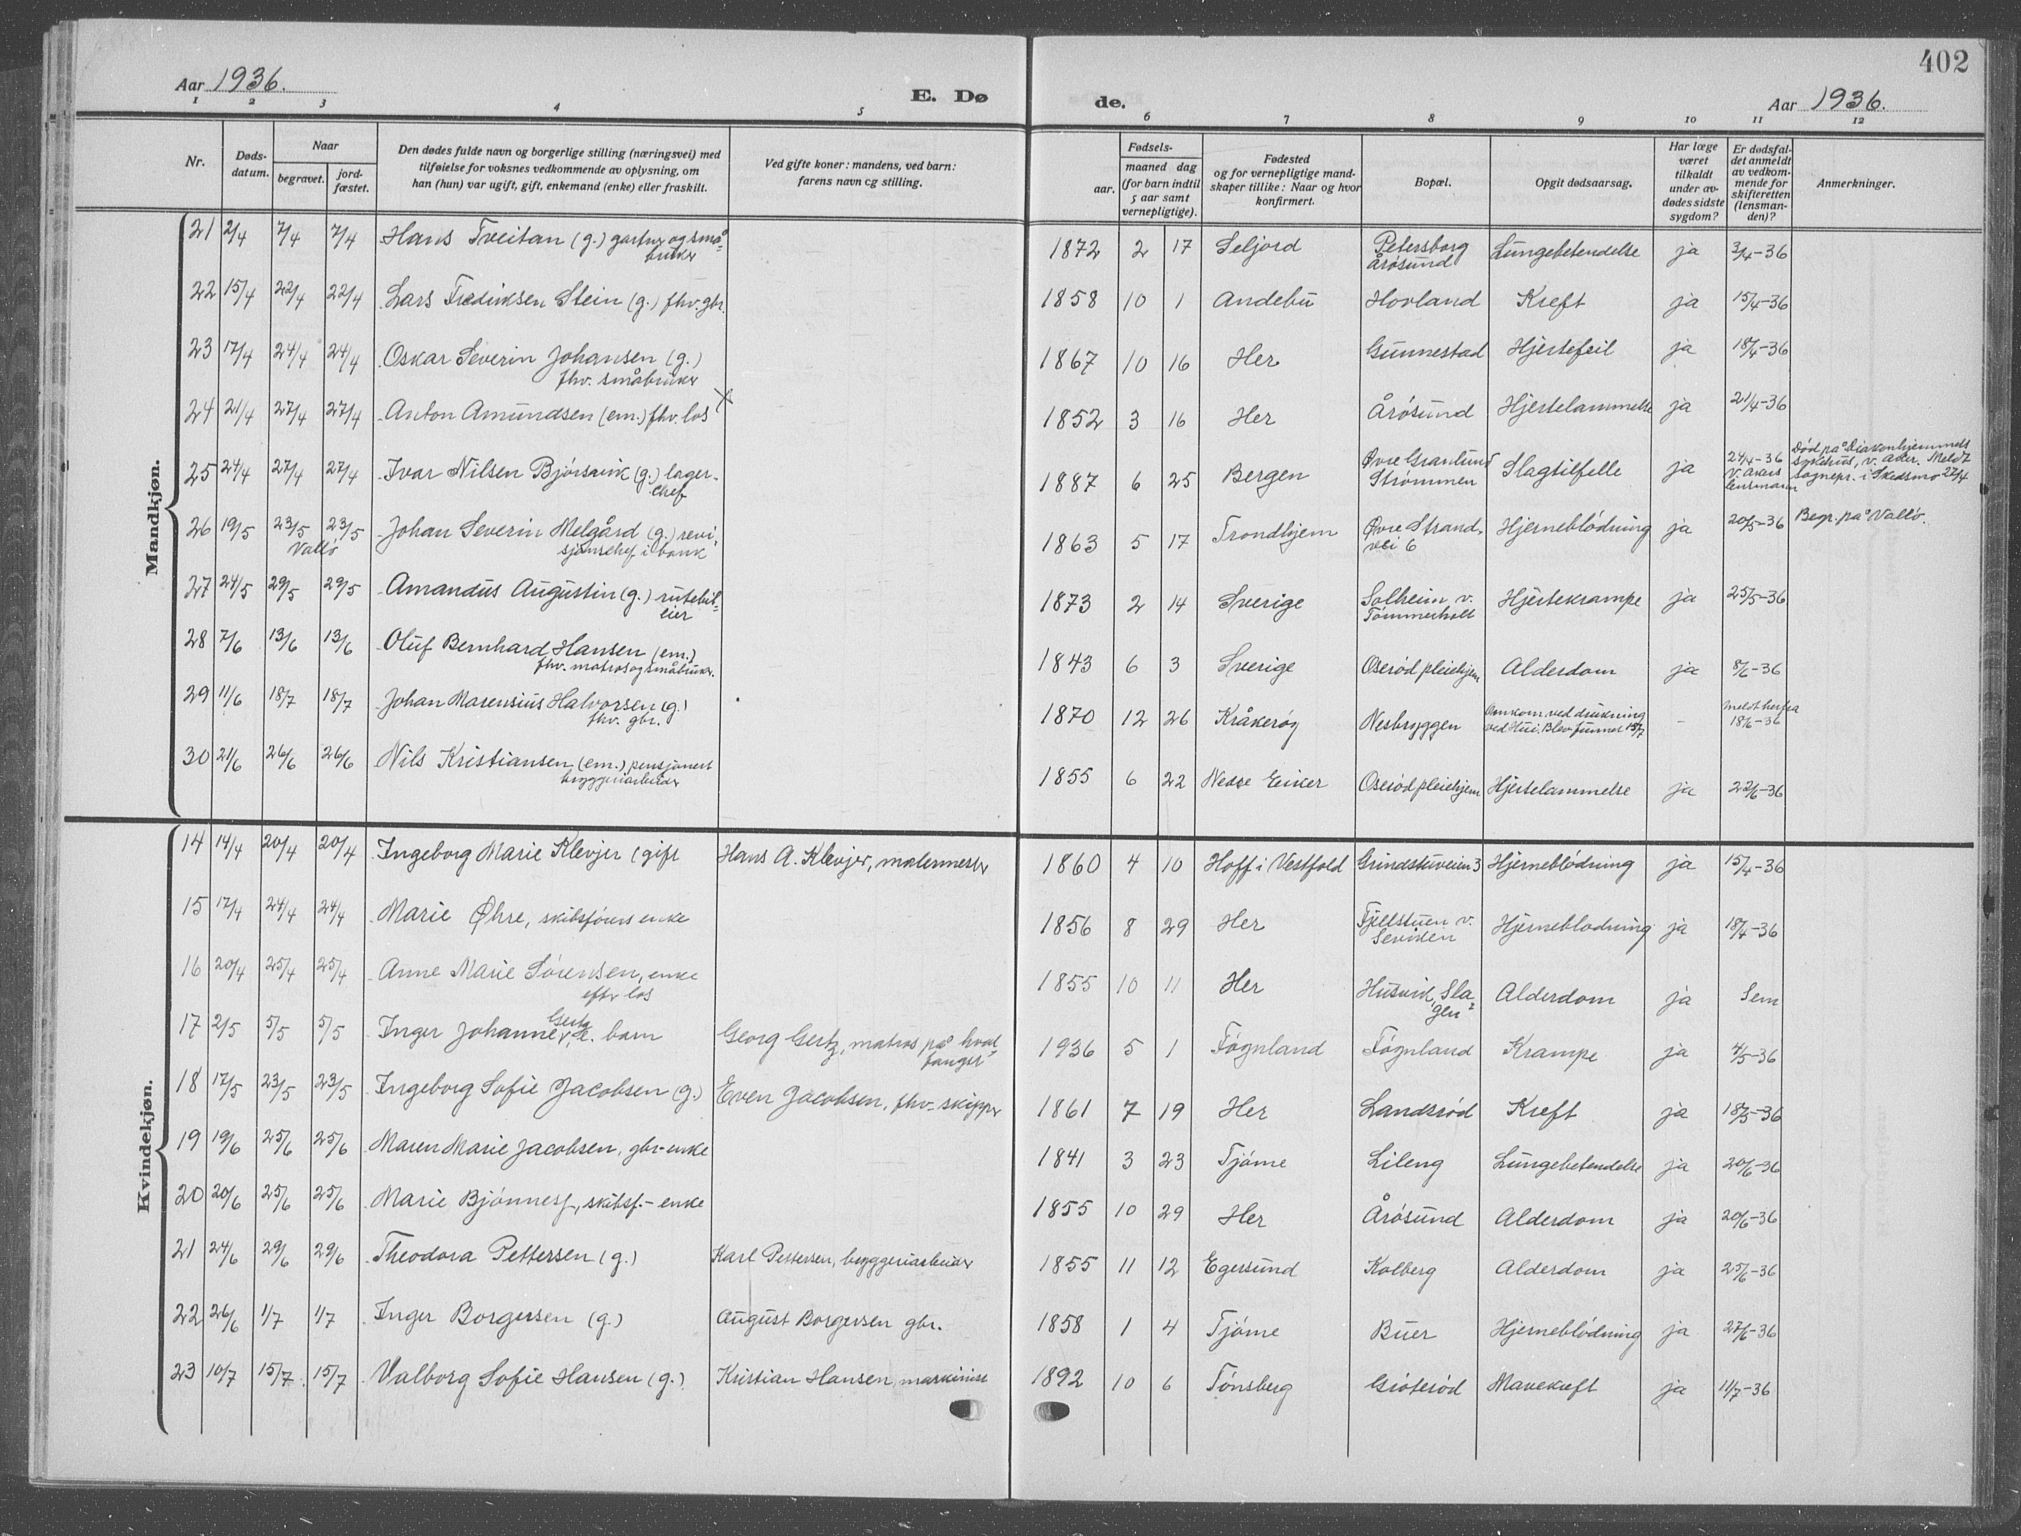 402
Aar 1936.
E. Dø
de.
Aar 1936.
1 2 3 4 5 6 7 8 9 10 11 12
Nr.
Døds-
datum.
Naar
begravet.
jord-
fæstet.
Den dødes fulde navn og borgerlige stilling (næringsvei) med
tilføielse for voksnes vedkommende av oplysning, om
han (hun) var ugift, gift, enkemand (enke) eller fraskilt.
Ved gifte koner: mandens, ved barn:
farens navn og stilling.
Fødsels-
aar.
maaned dag
(for barn indtil
5 aar samt
vernepligtige).
Fødested
og for vernepligtige mand-
skaper tillike: Naar og hvor
konfirmert.
Bopæl.
Opgit dødsaarsag.
Har læge
været
tilkaldt
under av-
dødes sidste
sygdom?
Er dødsfal-
det anmeldt
av vedkom-
mende for
skifteretten
(lensman-
den)?
Anmerkninger.
Mandkjøn.
21 2/4 7/4 7/4 Hans Tveitan (g.) gartner og små-
bruker
1872 2 17 Seljord Petersborg
Årøsund
Lungebetendelse ja 3/4-36
22 15/4 22/4 22/4 Lars Fredriksen Stein (g.) fhv. gbr. 1858 10 1 Andebu Hovland Kreft ja 15/4-36
23 17/4 24/4 24/4 Oskar Severin Johansen (g.)
fhv. småbruker
1867 10 16 Her Gunnestad Hjertefeil ja 18/4-36
24 21/4 27/4 27/4 Anton Amundsen (em.) fhv. los X 1852 3 16 Her Årøsund Hjertelammelse ja 21/4-36
25 24/4 27/4 27/4 Ivar Nilsen Bjørsvik (g.) lager-
chef
1887 6 25 Bergen Øvre Granlund
Strømmen
Slagtilfelle ja 24/4-36
v. avdøs
lensmann
Død på Diakonhjemmets
sykehus, v. Aker. Meldt
sognepr. i Skedsmo 27/4
26 19/5 23/5 23/5 Johan Severin Melgård (g.) revi-
Vallø
sjonschef i bank
1863 5 17 Trondhjem Øvre Strand-
vei 6
Hjerneblødning ja 20/5-36 Begr. på Vallø.
27 24/5 29/5 29/5 Amandus Augustin (g.) rutebil-
eier
1873 2 14 Sverige Solheim v.
Tømmerholt
Hjertekrampe ja 25/5-36
28 7/6 13/6 13/6 Oluf Bernhard Hansen (em.)
fhv. matros og småbruker.
1843 6 3 Sverige Oserød pleiehjem Alderdom ja 8/6-36
29 11/6 18/7 18/7 Johan Marensius Halvorsen (g.)
fhv. gbr.
1870 12 26 Kråkerøy Nesbryggen Omkom. ved drukning
ved Hui. Blev funnet 15/7
-
meldt herfra
18/6-36
30 21/6 26/6 26/6 Nils Kristiansen (em.) pensjonert
bryggeriarbeider
1855 6 22 Nedre Eiker Oserød pleiehjem Hjertelammelse ja 22/6-36
Kvindekjøn.
14 14/4 20/4 20/4 Ingeborg Marie Klevjer (gift Hans A. Klevjer, malermester 1860 4 10 Hoff i Vestfold Grindstuveien 3 Hjerneblødning ja 15/4-36
15 17/4 24/4 24/4 Marie Øhre, skibsførers enke 1856 8 29 Her Fjellstuen v.
Hjerneblødning ja 18/4-36
16 20/4 25/4 25/4 Anne Marie Sørensen, enke
efter los
1855 10 11 Her Husvik, Sla-
gen
Alderdom ja Sem
17 2/5 5/5 5/5 Inger Johanne Gertz barn Georg Gertz, matros på hval-
fangst
1936 5 1 Føynland Føynland Krampe ja 4/5-36
18 17/5 23/5 23/5 Ingeborg Sofie Jacobsen (g.) Even Jacobsen, fhv. skipper 1861 7 19 Her Landsrød Kreft ja 18/5-36
19 19/6 25/6 25/6 Maren Marie Jacobsen, gbr-enke 1841 3 23 Tjøme Lileng Lungebetendelse ja 20/6-36
20 20/6 25/6 25/6 Marie Bjønnes, skibsf.- enke 1855 10 29 Her Årøsund Alderdom ja 20/6-36
21 24/6 29/6 29/6 Theodora Pettersen (g.) Karl Pettersen, bryggeriarbeider 1855 11 12 Egersund Kolberg Alderdom ja 25/6-36
22 26/6 1/7 1/7 Inger Borgersen (g.) August Borgersen gbr. 1858 1 4 Tjøme Buer Hjerneblødning ja 27/6-36
23 10/7 15/7 15/7 Valborg Sofie Hansen (g.) Kristian Hansen, maskinist 1892 10 6 Tønsberg Grøterød Mavekreft ja 11/7-36